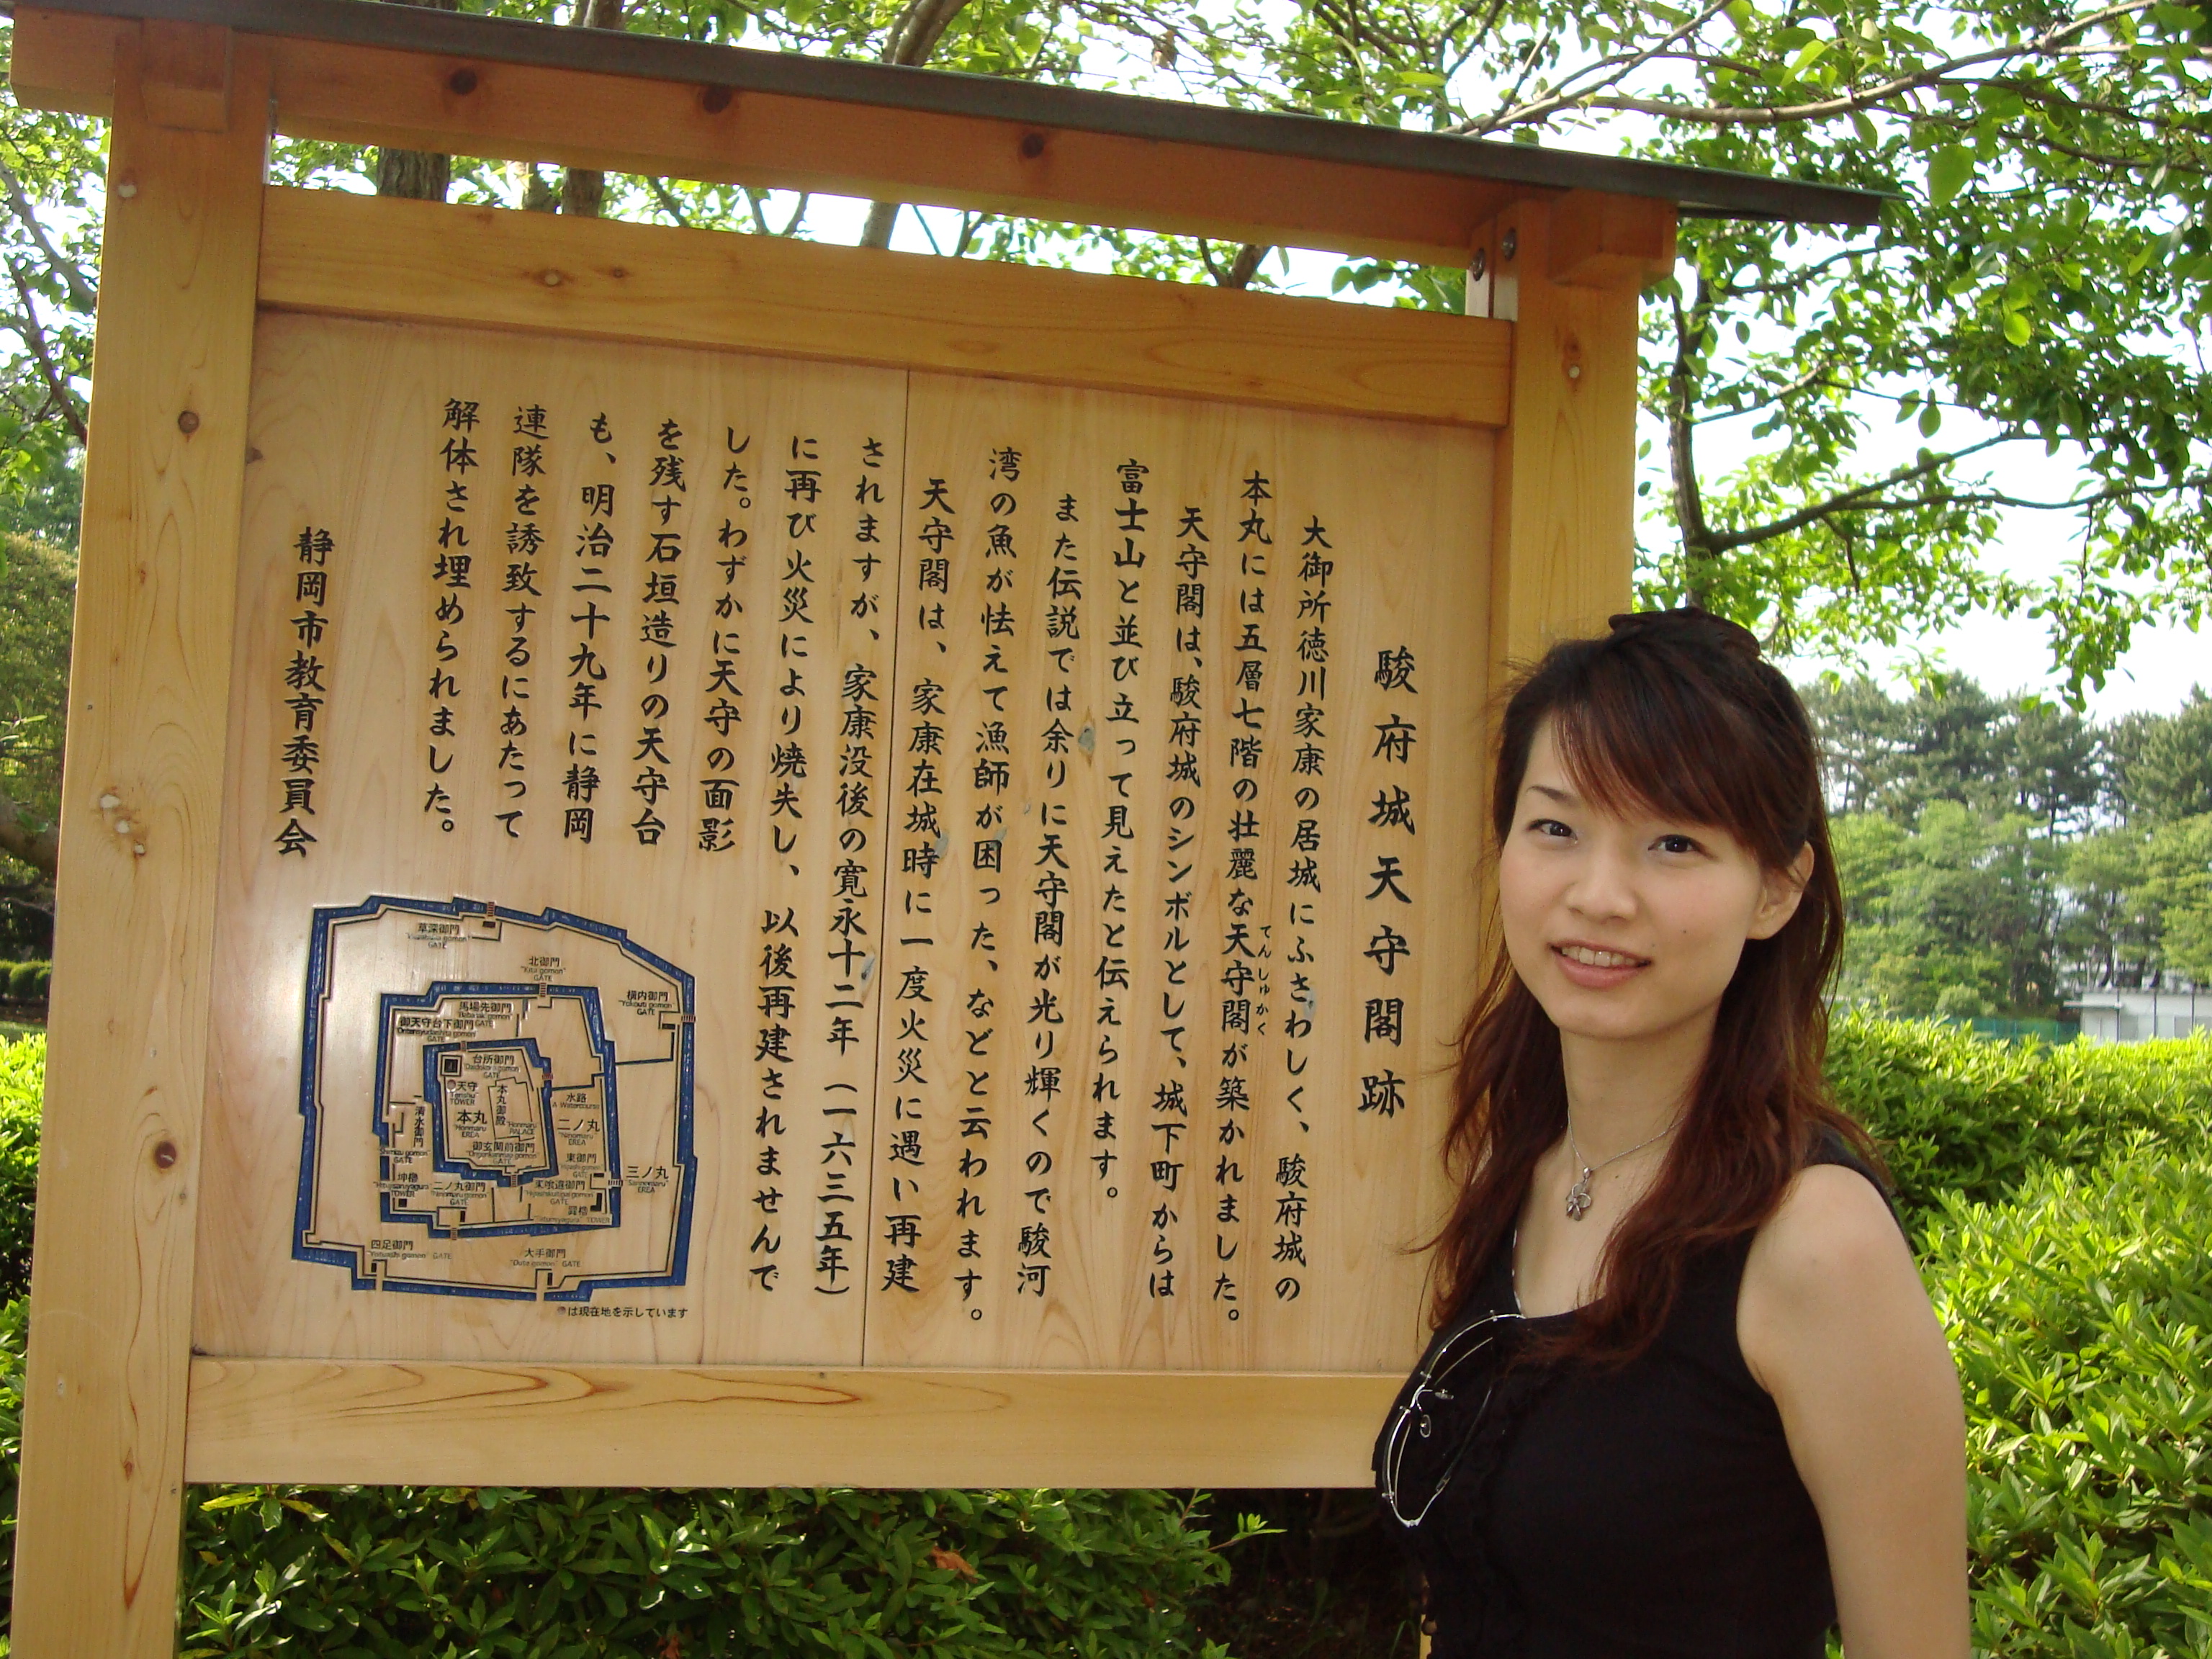 駿府城天守閣跡
大御所徳川家康の居城にふさわしく、駿府城の
本丸には五層七階の壮麗な天守閣が築かれました。
てんしゅかく
天守閣は、駿府城のシンボルとして、城下町からは
富士山と並び立って見えたと伝えられます。
また伝説では余りに天守閣が光り輝くので駿河
湾の魚が怯えて漁師が困った、などと云われます。
天守閣は、家康在城時に一度火災に遇い再建
されますが、家康没後の寛永十二年(一六三五年)
に再び火災により焼失し、以後再建されませんで
した。わずかに天守の面影
を残す石垣造りの天守台
も、明治二十九年に静岡
連隊を誘致するにあたって
解体され埋められました。
静岡市教育委員会
草深御門
GATE
北御門
"Kita gomon"
GATE
横内御門
"Yokouti gomon"
GATE
馬場先御門
GATE
御天守台下御門
GATE
台所御門
GATE
天守
"Tenshu"
TOWER
本丸御殿
"Honmaru"
PALACE
本丸
"Honmaru"
EREA
水路
A Watercourse
二ノ丸
"Ninomaru"
EREA
清水御門
"Shimizu gomon"
GATE
御玄関前御門
GATE
東御門
"Higashi gomon"
GATE
三ノ丸
"Sannomaru"
EREA
坤櫓
TOWER
二ノ丸御門
"Ninomaru gomon"
GATE
東喰違御門
GATE
巽櫓
TOWER
四足御門
GATE
大手御門
"Oote gomon"
GATE
は現在地を示しています